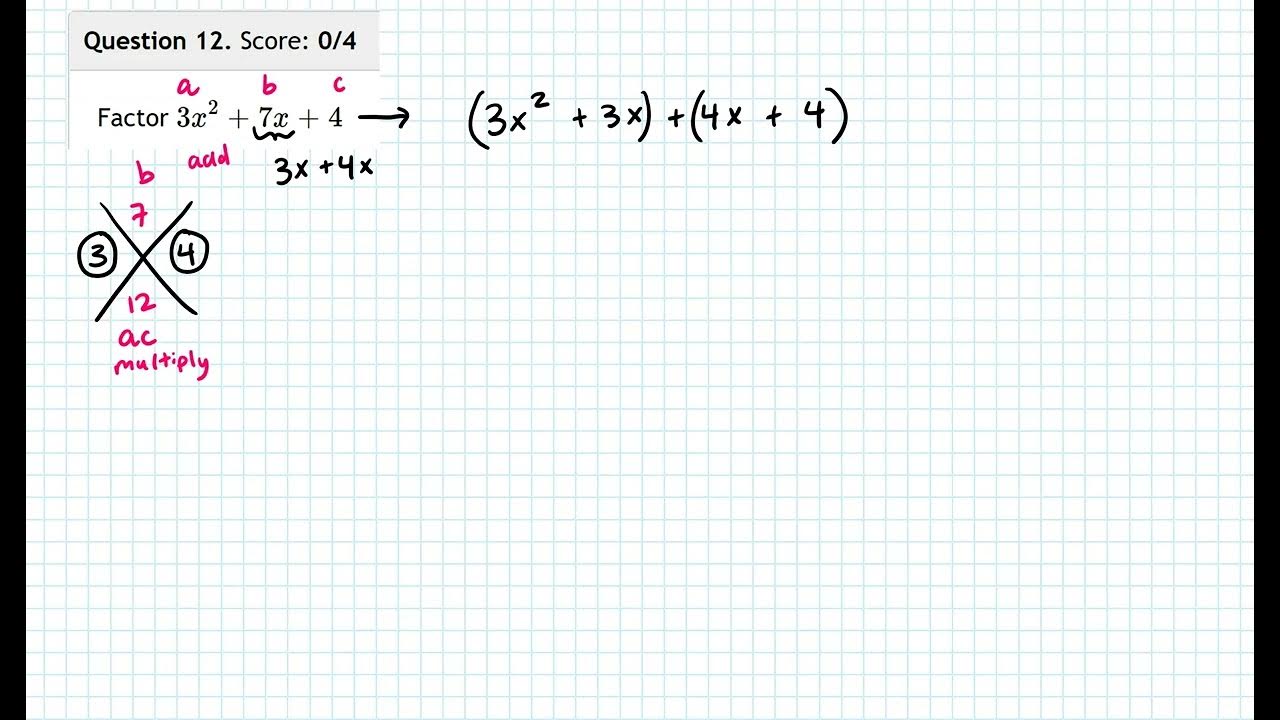 Question 12. Score: 0/4
a b c
Factor 3x² + 7x + 4 → (3x² + 3x) + (4x + 4)
add 3x + 4x
b
7
3 4
12
ac
multiply